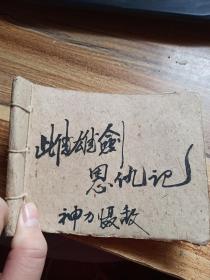 雌雄剑
恩仇记
神力慑敌